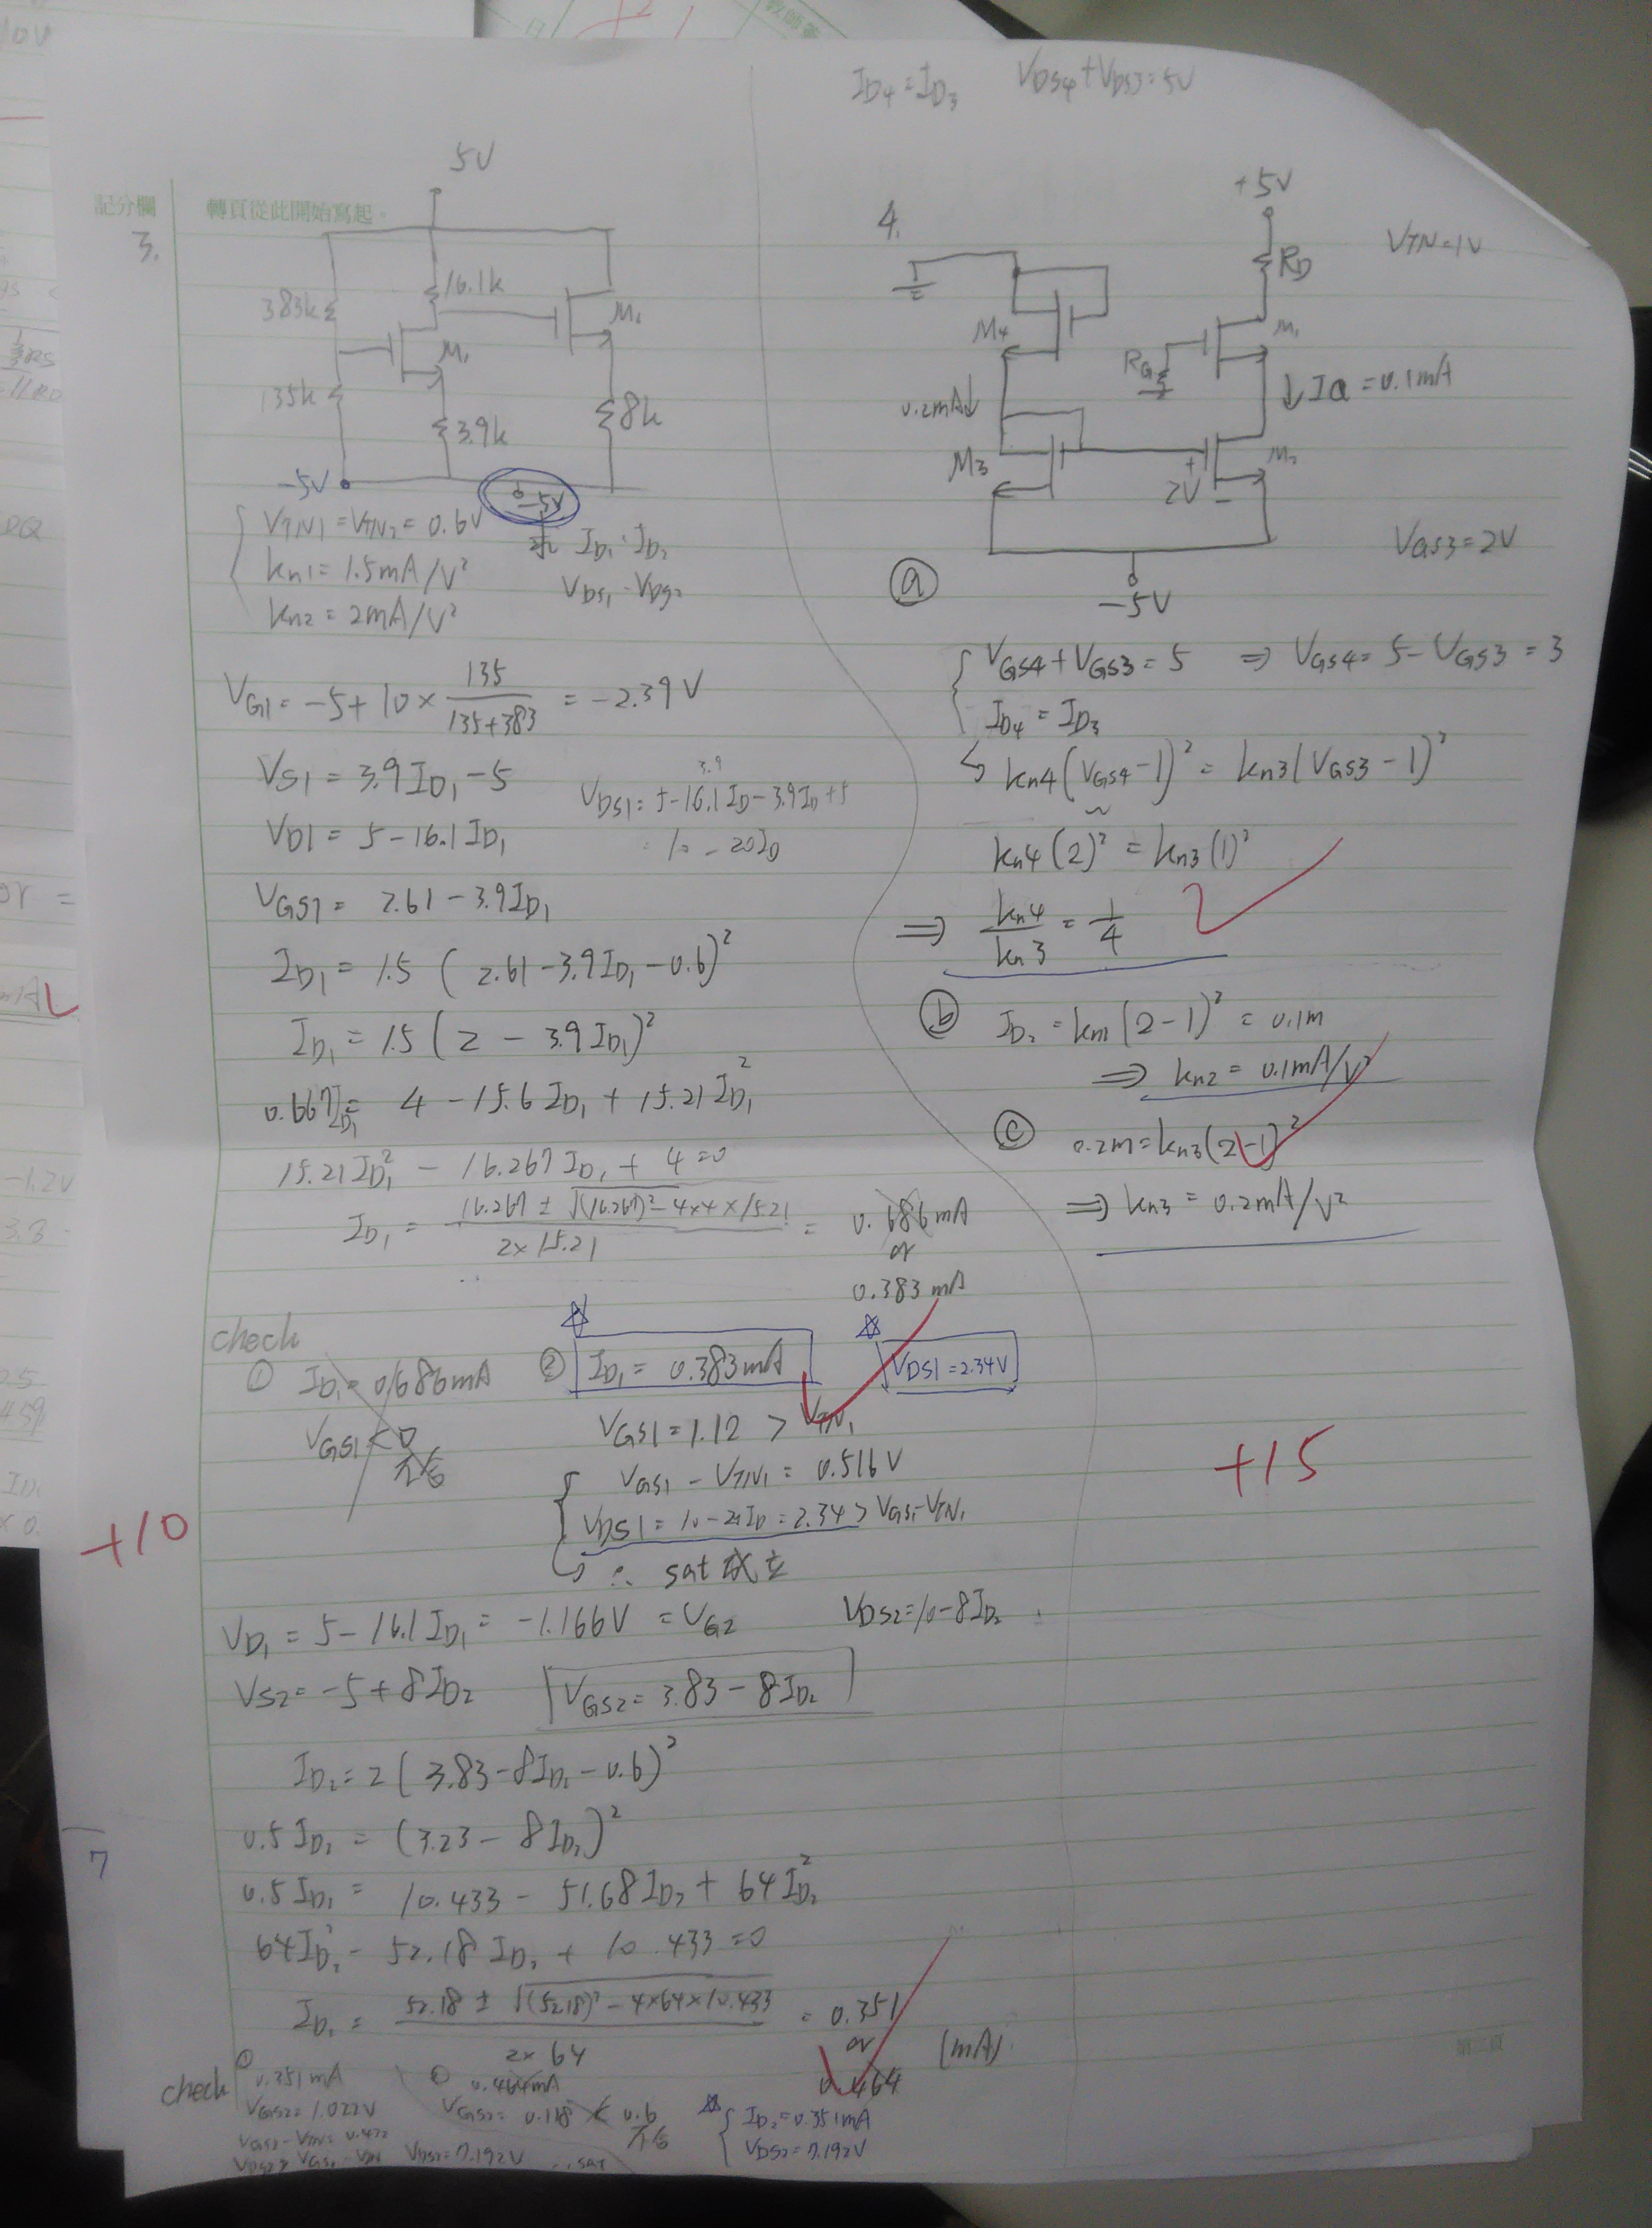 I_D4 = I_D3   V_DS4 + V_DS3 = 5V
記分欄
轉頁從此開始寫起。
3.
5V
383k
16.1k
M₁
135k
3.9k
8k
-5V
-5V
V_TN1 = V_TN2 = 0.6V
k_n1 = 1.5mA/V²
k_n2 = 2mA/V²
求 I_D1 · I_D2
V_DS1 · V_DS2
V_G1 = -5 + 10 × 135/(135+383) = -2.39V
V_S1 = 3.9I_D1 - 5
3.9
V_DS1 = 5 - 16.1I_D - 3.9I_D + 5
V_D1 = 5 - 16.1I_D1
10 - 20I_D
V_GS1 = 2.61 - 3.9I_D1
I_D1 = 1.5 (2.61 - 3.9I_D1 - 0.6)²
I_D1 = 1.5 (2 - 3.9I_D1)²
0.667I_D1 = 4 - 15.6I_D1 + 15.21I_D1²
15.21I_D1² - 16.267I_D1 + 4 = 0
I_D1 = (16.267 ± √((16.267)² - 4×4×15.21))/(2×15.21) = 0.686mA
or
0.383mA
check
① I_D1 = 0.686mA
V_GS1 < 0
不合
② I_D1 = 0.383mA
V_DS1 = 2.34V
V_GS1 = 1.12 > V_TN1
V_GS1 - V_TN1 = 0.516V
V_DS1 = 10 - 20I_D = 2.34 > V_GS1 - V_TN1
∴ sat 成立
+10
V_D1 = 5 - 16.1I_D1 = -1.166V = V_G2
V_DS2 = 10 - 8I_D2
V_S2 = -5 + 8I_D2
V_GS2 = 3.83 - 8I_D2
I_D2 = 2(3.83 - 8I_D2 - 0.6)²
0.5I_D2 = (3.23 - 8I_D2)²
7
0.5I_D2 = 10.433 - 51.68I_D2 + 64I_D2²
64I_D2² - 52.18I_D2 + 10.433 = 0
I_D2 = (52.18 ± √((52.18)² - 4×64×10.433))/(2×64) = 0.351
or
0.464
(mA)
check
① 0.351mA
V_GS2 = 1.022V
V_GS2 - V_TN = 0.422
V_DS2 > V_GS2 - V_TN   V_DS2 = 7.192V ∴ sat
② 0.464mA
V_GS2 = 0.118 < 0.6
不合
I_D2 = 0.351mA
V_DS2 = 7.192V
4.
+5V
V_TN = 1V
R_D
M₄
M₁
R_G
0.2mA↓
↓I_Q = 0.1mA
M₃
+
2V
-
M₂
-5V
V_GS3 = 2V
ⓐ
V_GS4 + V_GS3 = 5 ⇒ V_GS4 = 5 - V_GS3 = 3
I_D4 = I_D3
k_n4(V_GS4 - 1)² = k_n3(V_GS3 - 1)²
k_n4(2)² = k_n3(1)²
⇒ k_n4/k_n3 = 1/4
ⓑ I_D2 = k_n1(2-1)² = 0.1m
⇒ k_n2 = 0.1mA/V²
ⓒ 0.2m = k_n3(2-1)²
⇒ k_n3 = 0.2mA/V²
+15